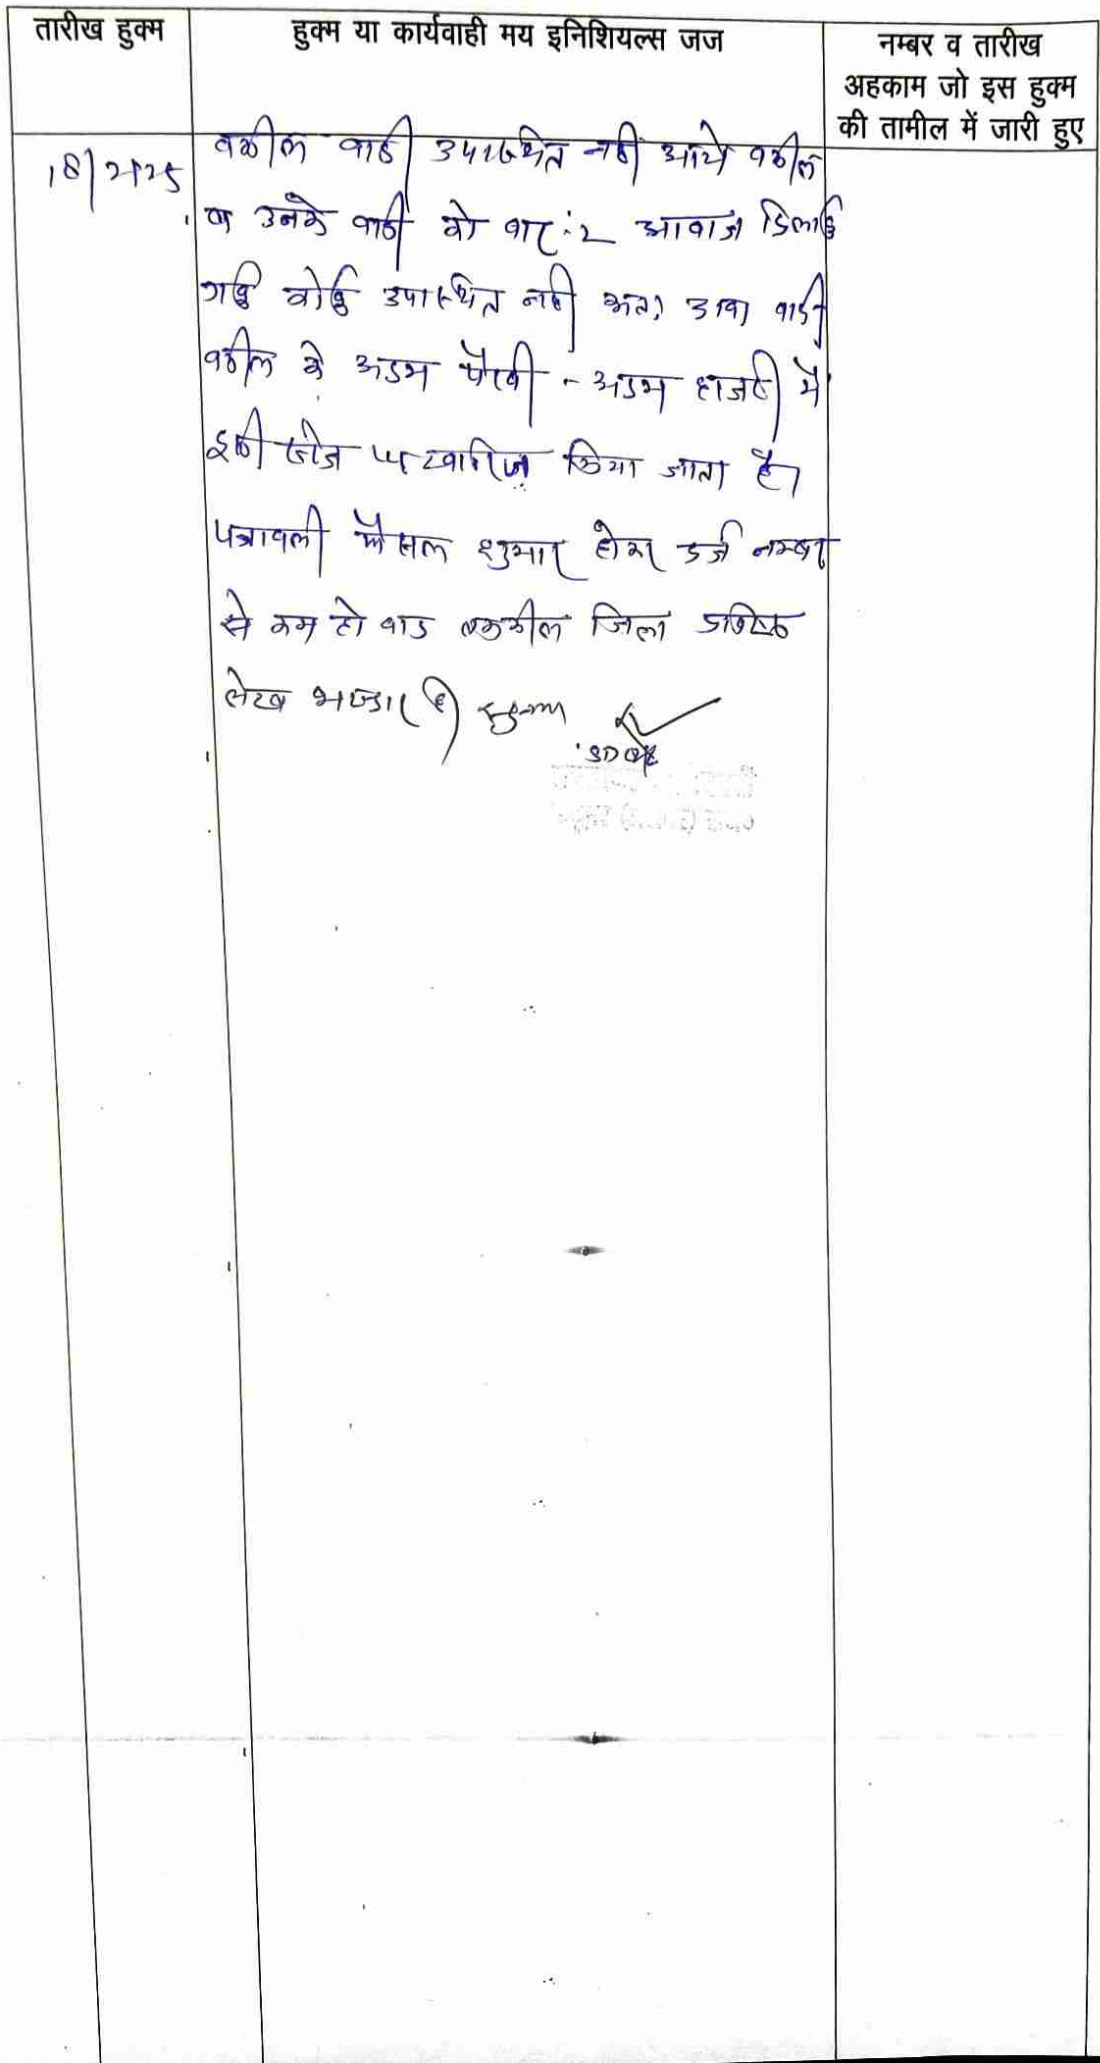 तारीख हुक्म
हुक्म या कार्यवाही मय इनिशियल्स जज
नम्बर व तारीख
अहकाम जो इस हुक्म
की तामील में जारी हुए
वकील वादी उपस्थित नही आये वकील
व उनके वादी को बार:2 आवाज दिलाई
गई कोई उपस्थित नही अत: वाद वादी
वकील के अदम पैरवी - अदम हाजरी में
इसी स्टेज पर खारिज किया जाता है।
पत्रावली फैसल शुमार होकर दर्ज नम्बर
से कम हो वाद तकमील जिला
लेख भण्डार हो